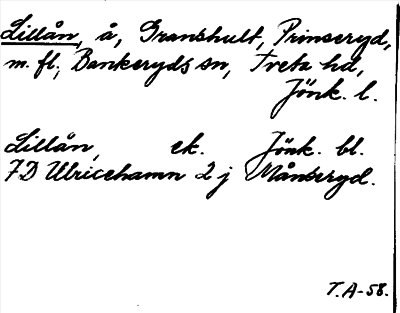 Lillån, å, Granshult, Prinseryd,
m. fl., Bankeryds sn, Tveta hd,
Jönk. l.
Lillån, ek. Jönk. bl.
7D Ulricehamn 2 j Månseryd.
T.A-58.